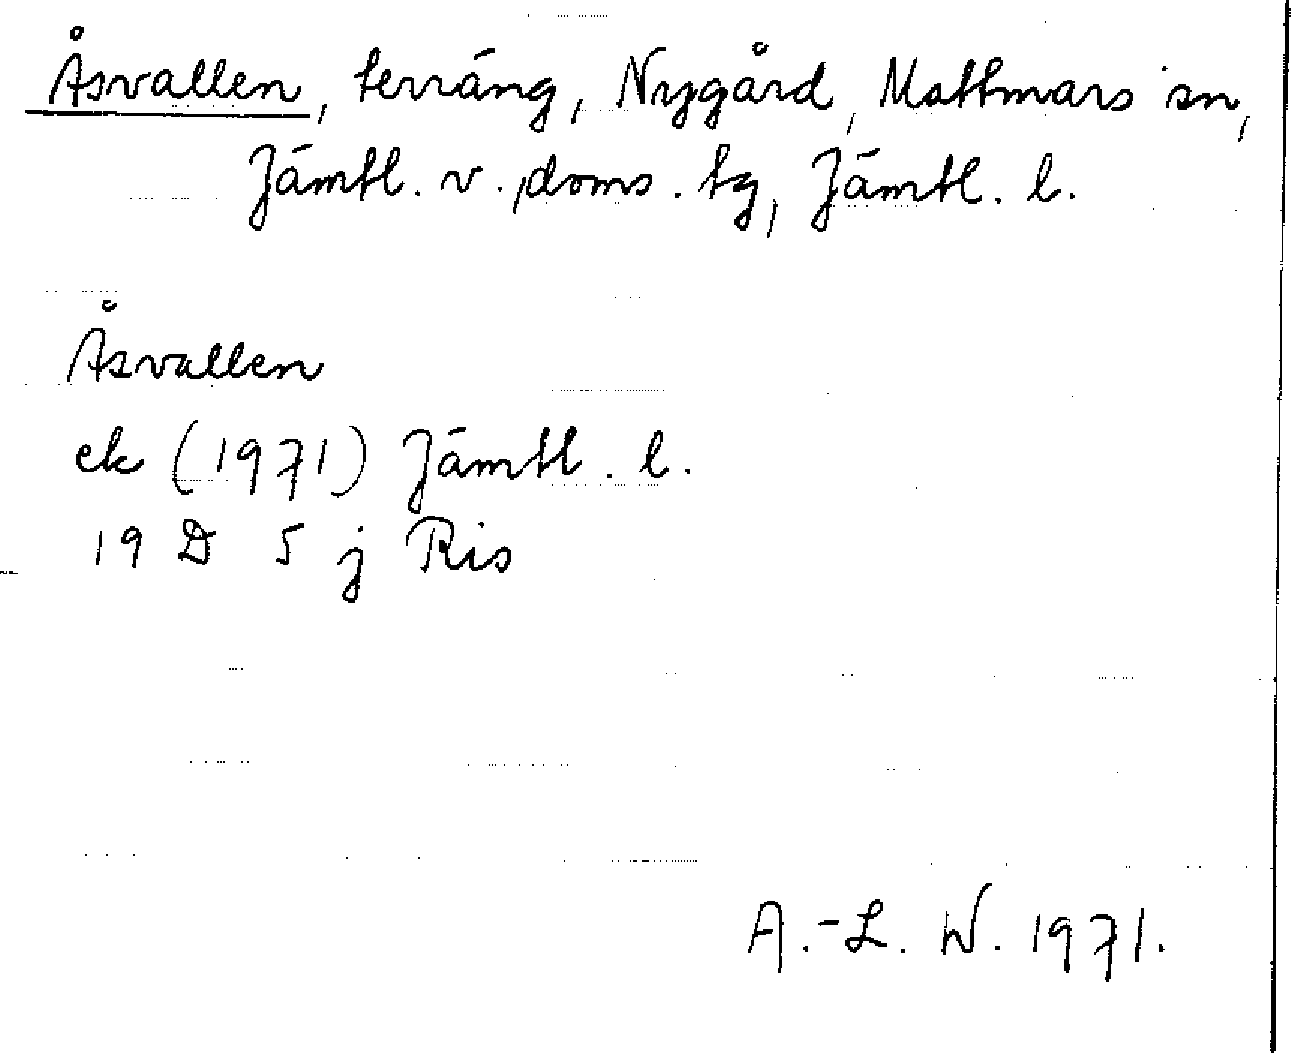 Åsvallen, terräng, Nygård, Mattmars sn,
Jämtl. v. doms. tg, Jämtl. l.
Åsvallen
ek (1971) Jämtl. l.
19 D 5 j Ris
A.-L. W. 1971.